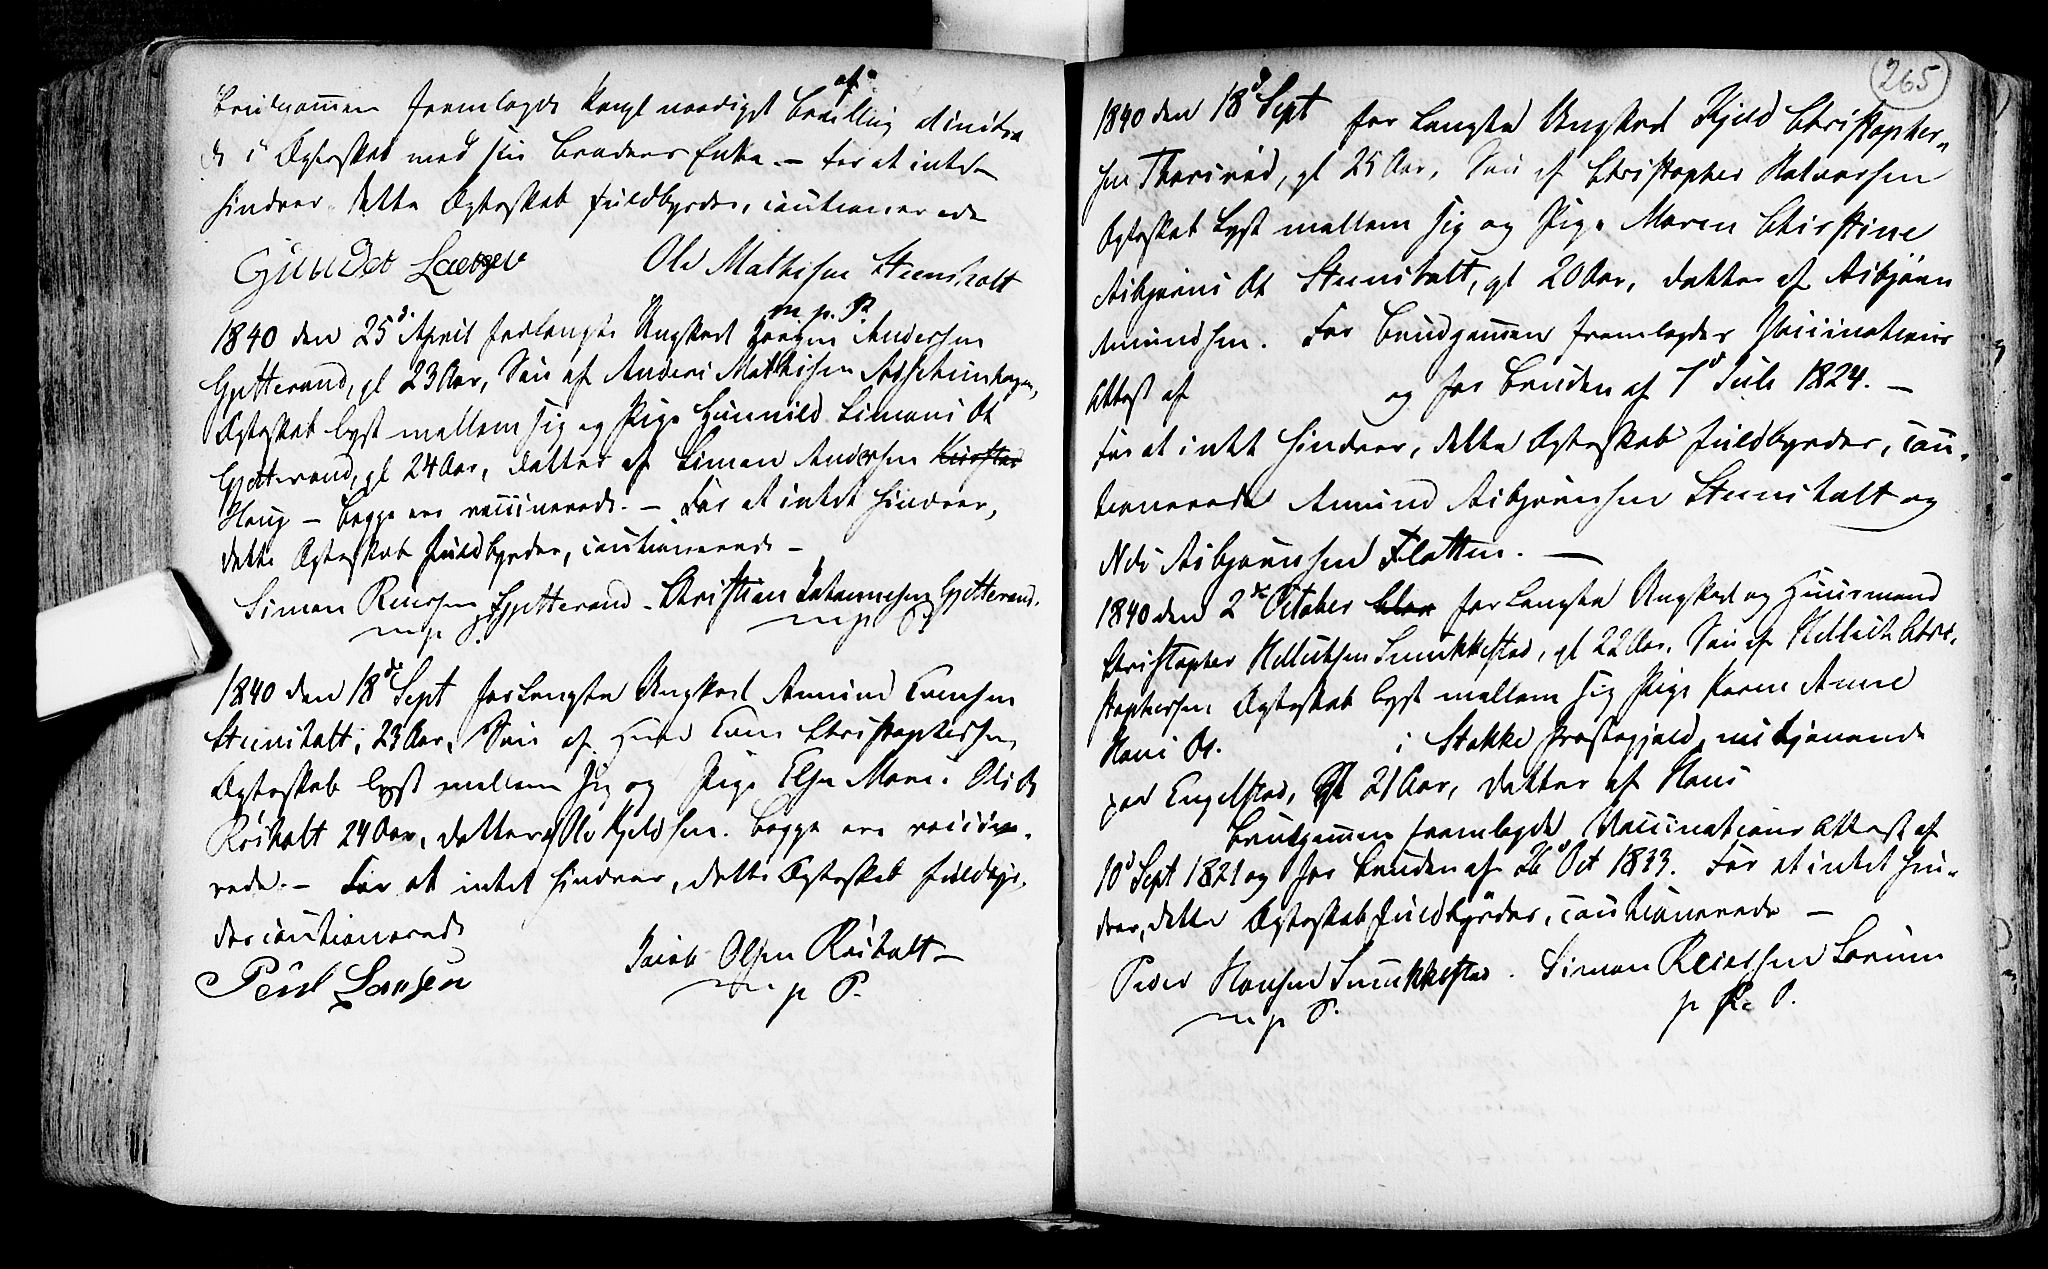 Brudgommen fremlagde Kongl naadigst Bevilling af at indtræ
de i Ægteskab med sin Broders Enke. – For at intet
hindrer dette Ægteskab fuldbyrdes, cautionerede
Ole Mathisen Steensholt
m. p. P.
1840 den 25d April forlangte Ungkarl Jørgen Andersen
Gjetterand, gl 23 Aar, Søn af Anders Mathisen
Ægteskab lyst mellem sig og Pige Gunnild Simons Dt
Gjetterand, gl 24 Aar, Datter af Simen Andersen
Haug – begge ere vaccinerede. – For at intet hindrer,
dette Ægteskab fuldbyrdes, cautionerede –
Simon Reiersen Gjetterand – Christian Johannesen Gjetterand.
m p P. m p P
1840 den 18de Sept forlangte Ungkarl Amund
Steensholt, 23 Aar, Søn af Christophersen
Ægteskab lyst mellem sig og Pige Else Marie Ols Dt
Røsholt 24 Aar, Datter af Ole Kjeldsen. begge ere vaccine-
rede. – For at intet hindrer, dette Ægteskab fuldbyr-
des cautionerede
Poul Larsen Jacob Olsen Røsholt –
m p P.
265
1840 den 18d Sept forlangte Ungkarl Kjeld Christopher-
sen gl 25 Aar, Søn af Christopher Halvorsen
Ægteskab lyst mellem sig og Pige Maren Christine
Asbjørns Dt Steensholt, gl 20 Aar, Datter af Asbjørn
Amundsen. For Brudgommen fremlagdes Vaccinations
Attest af og for Bruden af 7d Juli 1824. –
For at intet hindrer, dette Ægteskab fuldbyrdes, cau-
tionerede Amund Asbjørnsen Steensholt og
Nils Asbjørnsen Flatten. –
1840 den 2de October forlangte Ungkarl og Huusmand
Christopher Helliksen Smukkestad, gl 22 Aar. Søn af Hellik Chri-
stophersen Ægteskab lyst mellem sig Pige Karen Anne
Hans Dt. i Stokke Præstegjeld, nu tjenende
paa Engelstad, gl 21 Aar, Datter af Hans
Brudgommen fremlagde Vaccinations Attest af
10d Sept 1821 og for Bruden af 26d Oct 1833. For at intet hin-
drer, dette Ægteskab fuldbyrdes, cautionerede –
Peder Hansen Smukkestad. Simon Reiersen
m p P. p P.